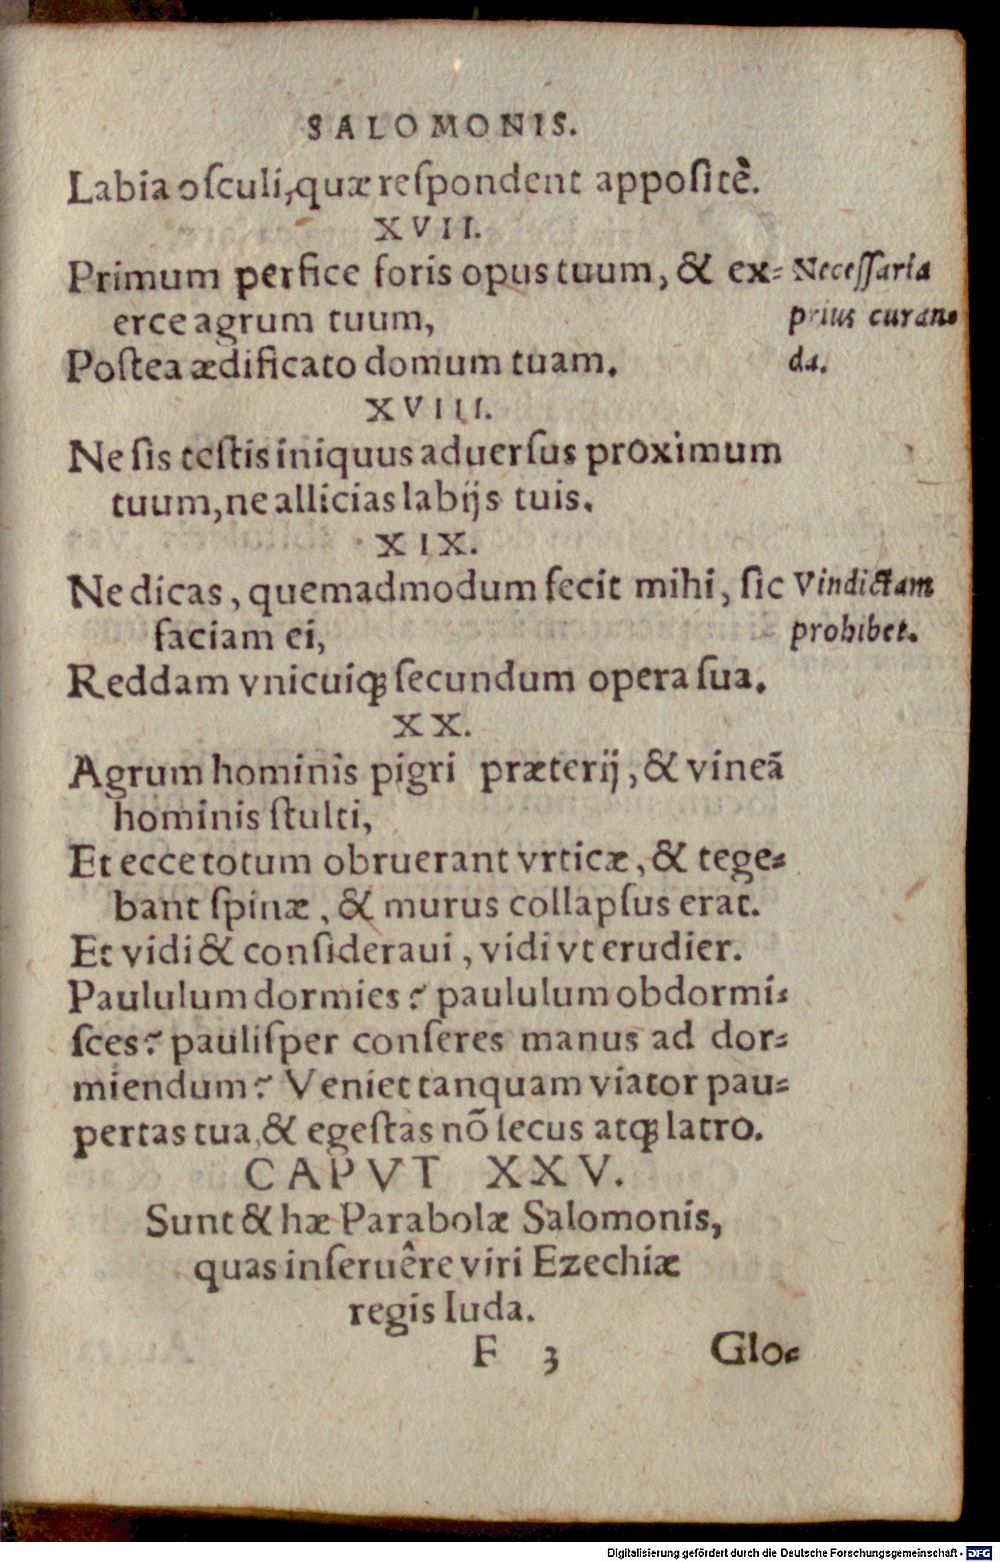 SALOMONIS.
Labia osculi, quæ respondent appositè.
XVII.
Primum perfice foris opus tuum, & ex-
erce agrum tuum,
Postea ædificato domum tuam.
Necessaria
prius curan-
da.
XVIII.
Ne sis testis iniquus aduersus proximum
tuum, ne allicias labijs tuis.
XIX.
Ne dicas, quemadmodum fecit mihi, sic
faciam ei,
Vindictam
prohibet.
Reddam vnicuiqꝫ secundum opera sua.
XX.
Agrum hominis pigri præterij, & vineã
hominis stulti,
Et ecce totum obruerant vrticæ, & tege-
bant spinæ, & murus collapsus erat.
Et vidi & consideraui, vidi vt erudier.
Paululum dormies? paululum obdormi-
sces? paulisper conseres manus ad dor-
miendum? Veniet tanquam viator pau-
pertas tua, & egestas nõ secus atqꝫ latro.
CAPVT XXV.
Sunt & hæ Parabolæ Salomonis,
quas inseruêre viri Ezechiæ
regis Iuda.
F 3 Glo-
Digitalisierung gefördert durch die Deutsche Forschungsgemeinschaft - DFG